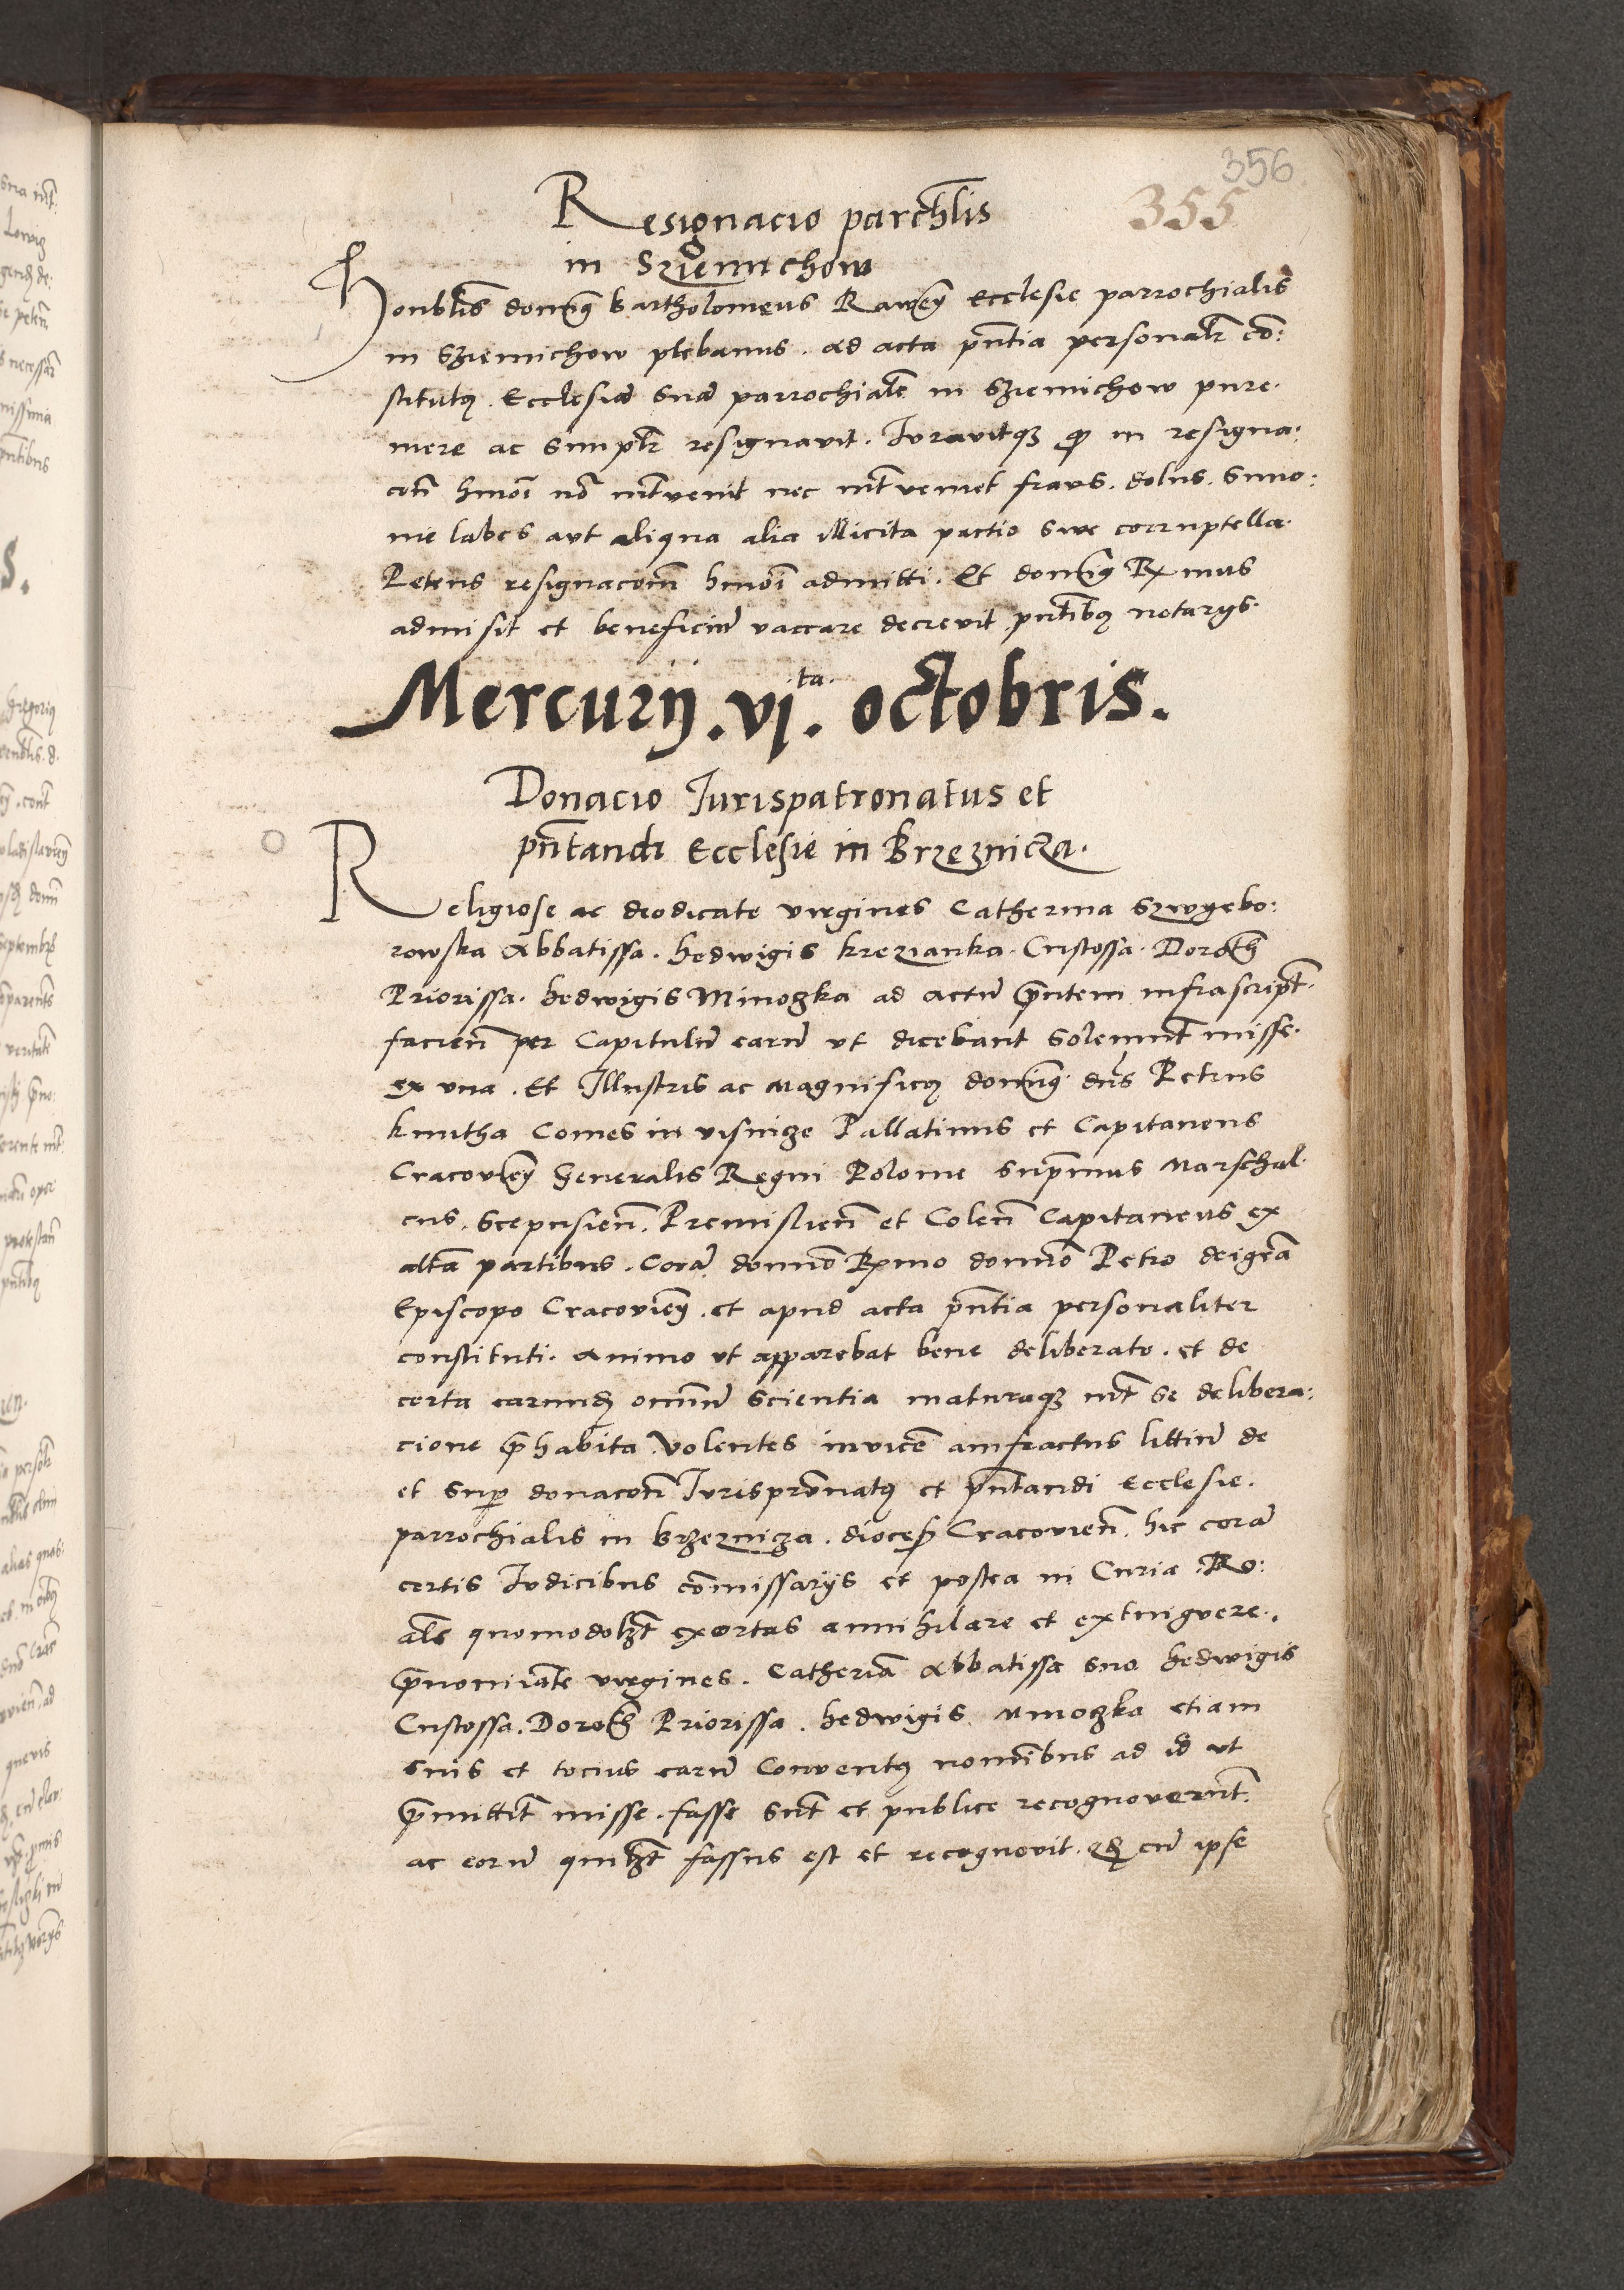 356
355
Resignacio parrochlis
in Sziemichow
Honblis domīnq bartholomeus Rawen̄ Ecclesie parrochialis
in Sziemichow plebanus . ad acta p̄ntia personalr̄ cō:
stitutq . Ecclesiā suā parrochialē in Sziemichow pure.
mere ac simplr̄ resignavit . Juravitqz q in resigna:
cōn hmōi nō int̄venit nec int̄veniet fraus . dolus . simo:
nie labes aut aliqua alia illicita pactio sive corruptella.
Petens resignacōm hmōi admitti . Et domīnq Rx̄mus
admisit et beneficiū vaccare decrevit p̄ntibq notarys.
Mercurij .vj.ta octobris.
Donacio Jurispatronatus et
p̄ntandi Ecclesie in Brzeznicza.
Religiose ac deodicate virgines Catherina Szwyebo:
rowska Abbatissa . hedwigis krezianka . Custossa . Doroth̄
Priorissa . hedwigis Minoczka ad actū p̄ntem infrascript̄.
facien̄ per Capitulū earū ut dicebant solemnit̄ misse.
ex una . Et Illustris ac Magnificq domīnq dn̄s Petrus
kmitha Comes in visnicze Pallatinus et Capitaneus
Cracovien̄ Generalis Regni Polonie sup̄mus Marschal
cus . Scepusien̄ . Premislien̄ et Colen̄ Capitaneus ex
altā partibus . Corā domnō Rx̄mo domnō Petro dei gr̄a
Episcopo Cracovien̄ . et apud acta p̄ntia personaliter
constituti . animo ut apparebat bene deliberato . et de
certa earund̄ omniū scientia maturaqz int̄ se delibera:
cione p̄habita . Volentes invicē amfractus littiū de
et sup̄ donacōn Jurispr̄onatq et p̄ntandi Ecclesie.
parrochialis in brzeznicza . dioces̄ Cracovien̄ . hic corā
certis Judicibus cōmissarijs et postea in Curia . Ro:
als quomodolzt̄ exortas annihilare et extinguere.
p̄nomīate virgines . Catherīa Abbatissa sua hedwigis
Custossa . Doroth̄ Priorissa . hedwigis Mnoczka etiam
suis et tocius earū Conventq nomībus ad id ut
p̄mittit̄ misse . fasse sunt et publice recognoverunt̄.
ac eorū quilzt̄ fassus est et recognovit . qd̄ cū ipse